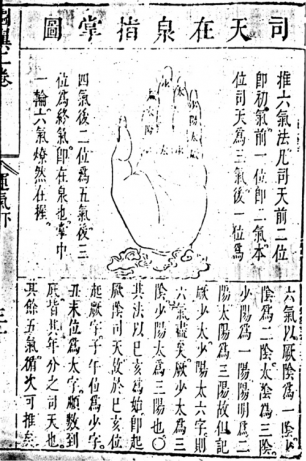 司天在泉指掌圖
推六氣法凡司天前二位
即初氣前一位即二氣本
位司天為三氣後一位為
四氣後二位為五氣後三
位為終氣即在泉也掌中
一輪六氣燎然在握
六氣以厥陰為一陰少
陰為二陰太陰為三陰
少陽為一陽陽明為二
陽太陽為三陽故但記
厥少太少陽太六字則
六氣盡矣厥少太為三
陰少陽太為三陽也○
其法以巳亥為始即起
厥陰司天故於巳亥位
起厥字子午位為少字
丑未位為太字順數到
底皆其年分之司天也
其餘五氣循次可推矣
圖翼二卷
運氣下